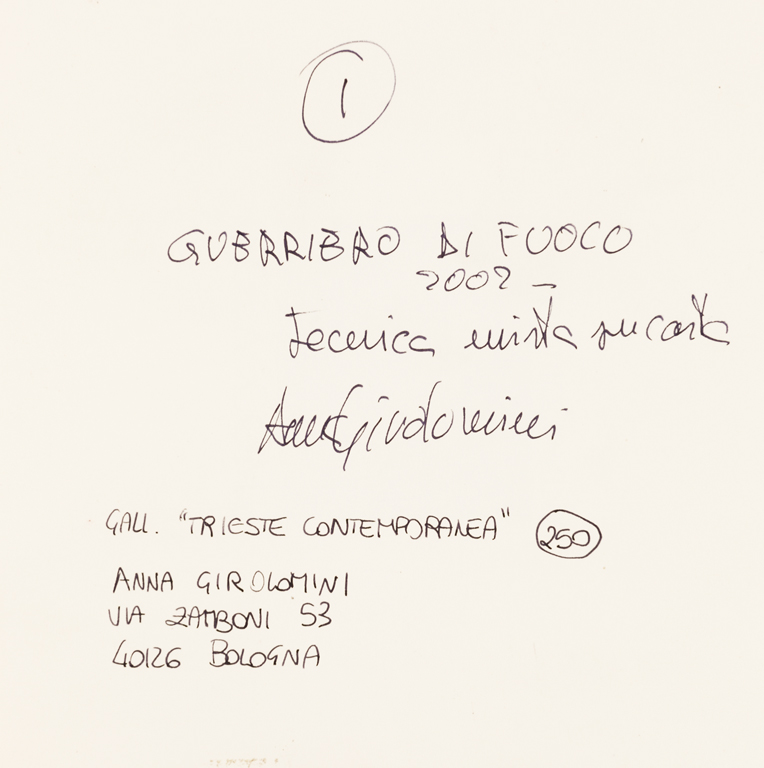 1
GUERRIERO DI FUOCO
2002 -
tecnica mista su carta
Anna Girolomini
GALL. "TRIESTE CONTEMPORANEA" 250
ANNA GIROLOMINI
VIA ZAMBONI 53
40126 BOLOGNA